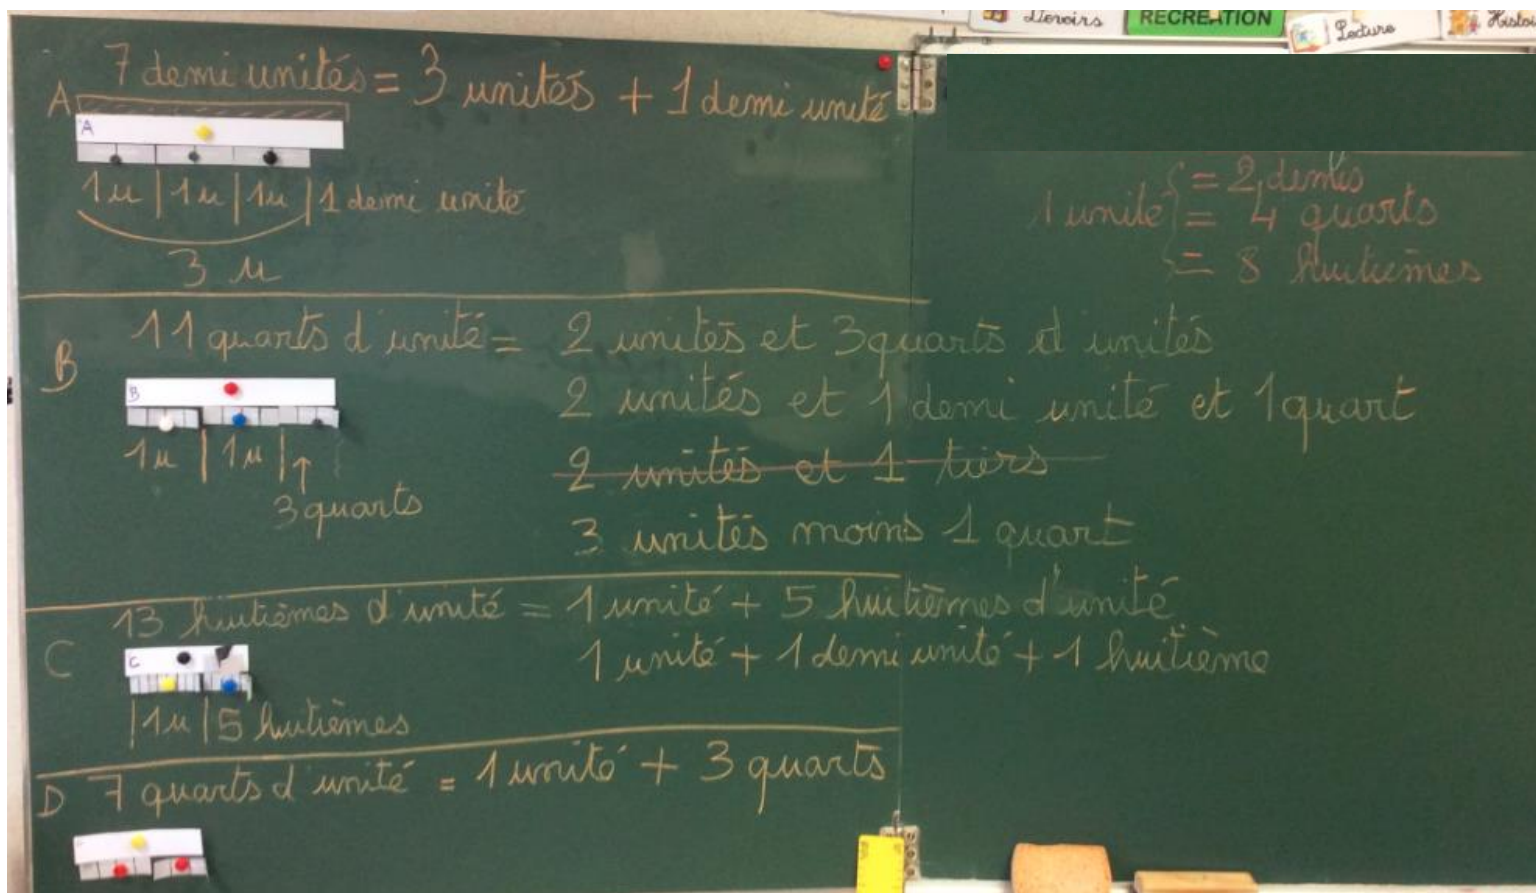 Devoirs
RECREATION
Lecture
Histoi
A
7 demi unités = 3 unités + 1 demi unité
A
1u | 1u | 1u | 1 demi unité
3 u
1 unité
= 2 demis
= 4 quarts
= 8 huitièmes
B
11 quarts d'unité = 2 unités et 3 quarts d'unités
B
2 unités et 1 demi unité et 1 quart
1u | 1u |
3 quarts
2 unités et 1 tiers
3 unités moins 1 quart
C
13 huitièmes d'unité = 1 unité + 5 huitièmes d'unité
C
1 unité + 1 demi unité + 1 huitième
| 1u | 5 huitièmes
D 7 quarts d'unité = 1 unité + 3 quarts